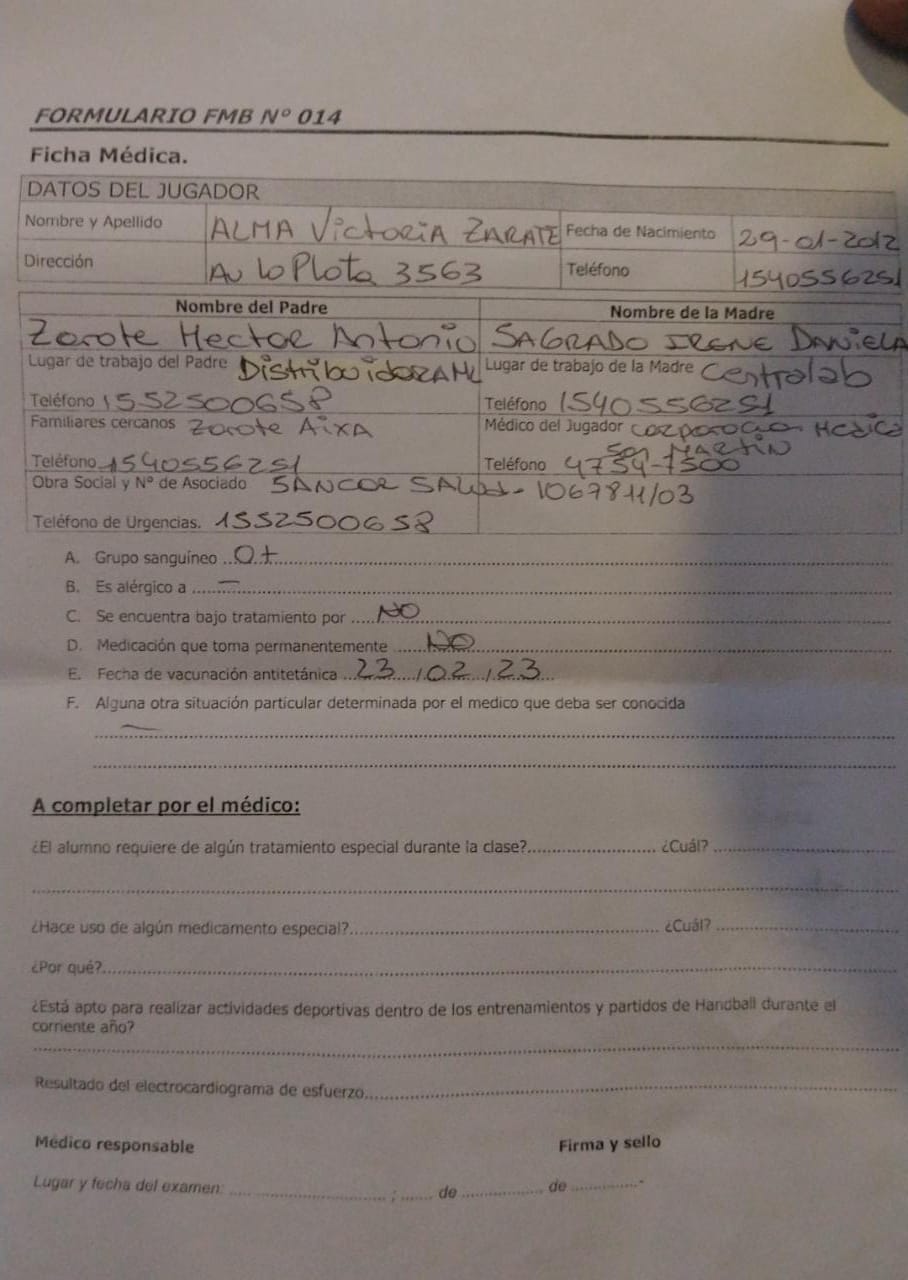 FORMULARIO FMB Nº 014
Ficha Médica.
DATOS DEL JUGADOR
Nombre y Apellido ALMA VictoRiA ZARATE Fecha de Nacimiento 29-01-2012
Dirección Av La Plata 3563 Teléfono 1540556251
Nombre del Padre Nombre de la Madre
Zarate Hector Antonio SAGRADO IRENE DANIELA
Lugar de trabajo del Padre DistribuidoRA Lugar de trabajo de la Madre Centralab
Teléfono 1552500658 Teléfono 1540556251
Familiares cercanos Zarate AixA Médico del Jugador corporacion Medica
San MARTIN
Teléfono 1540556251 Teléfono 4754-7500
Obra Social y Nº de Asociado SANCOR SALUD - 1067811/03
Teléfono de Urgencias. 1552500658
A. Grupo sanguíneo O+
B. Es alérgico a —
C. Se encuentra bajo tratamiento por NO
D. Medicación que toma permanentemente NO
E. Fecha de vacunación antitetánica 23/02/23
F. Alguna otra situación particular determinada por el medico que deba ser conocida
—
A completar por el médico:
¿El alumno requiere de algún tratamiento especial durante la clase? ¿Cuál?
¿Hace uso de algún medicamento especial? ¿Cuál?
¿Por qué?
¿Está apto para realizar actividades deportivas dentro de los entrenamientos y partidos de Handball durante el
corriente año?
Resultado del electrocardiograma de esfuerzo
Médico responsable Firma y sello
Lugar y fecha del examen: ; de de .-